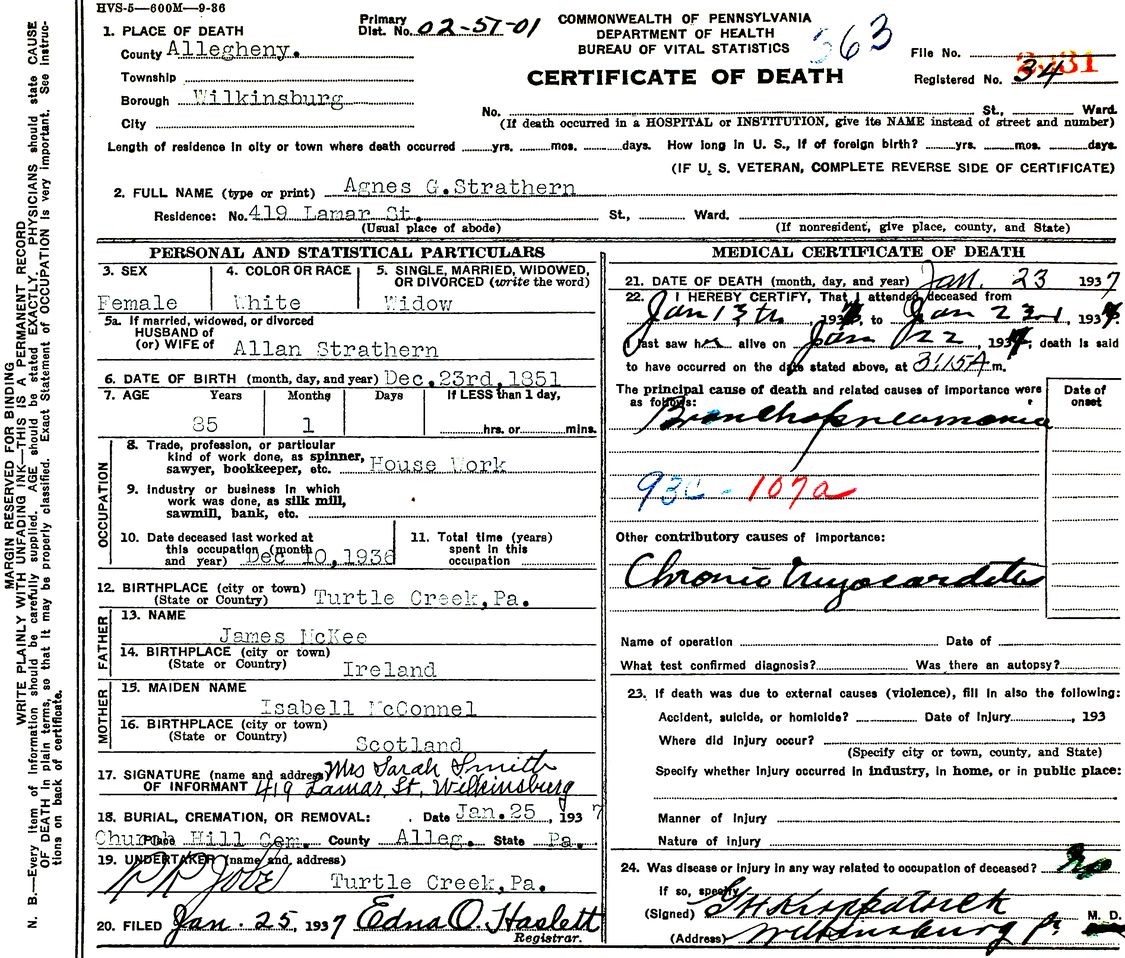 HVS-5—600M—9-36
COMMONWEALTH OF PENNSYLVANIA
DEPARTMENT OF HEALTH
BUREAU OF VITAL STATISTICS
CERTIFICATE OF DEATH
Primary
Dist. No. 02-57-01
563
File No.
Registered No. 34
1. PLACE OF DEATH
County Allegheny.
Township
Borough Wilkinsburg
City
No. St., Ward.
(If death occurred in a HOSPITAL or INSTITUTION, give its NAME instead of street and number)
Length of residence in city or town where death occurred yrs. mos. days. How long in U. S., if of foreign birth? yrs. mos. days.
(IF U. S. VETERAN, COMPLETE REVERSE SIDE OF CERTIFICATE)
2. FULL NAME (type or print) Agnes G. Strathern
Residence: No. 419 Lamar St. St., Ward.
(Usual place of abode) (If nonresident, give place, county, and State)
PERSONAL AND STATISTICAL PARTICULARS
3. SEX 4. COLOR OR RACE 5. SINGLE, MARRIED, WIDOWED,
OR DIVORCED (write the word)
Female White Widow
5a. If married, widowed, or divorced
HUSBAND of
(or) WIFE of Allan Strathern
6. DATE OF BIRTH (month, day, and year) Dec.23rd,1851
7. AGE Years Months Days If LESS than 1 day,
85 1 hrs. or mins.
OCCUPATION
8. Trade, profession, or particular
kind of work done, as spinner,
sawyer, bookkeeper, etc. House Work
9. Industry or business in which
work was done, as silk mill,
sawmill, bank, etc.
10. Date deceased last worked at
this occupation (month
and year) Dec 10,1936
11. Total time (years)
spent in this
occupation
12. BIRTHPLACE (city or town)
(State or Country) Turtle Creek,Pa.
FATHER
13. NAME
James McKee
14. BIRTHPLACE (city or town)
(State or Country) Ireland
MOTHER
15. MAIDEN NAME
Isabell McConnel
16. BIRTHPLACE (city or town)
(State or Country) Scotland
17. SIGNATURE (name and address) Mrs Sarah Smith
OF INFORMANT 419 Lamar St, Wilkinsburg
18. BURIAL, CREMATION, OR REMOVAL: Date Jan.25, 1937
Place Church Hill Cem. County Alleg. State Pa.
19. UNDERTAKER (name and address)
Turtle Creek,Pa.
20. FILED Jan. 25, 1937 Edna O. Haslett
Registrar.
MEDICAL CERTIFICATE OF DEATH
21. DATE OF DEATH (month, day, and year) Jan. 23 1937
22. I HEREBY CERTIFY, That I attended deceased from
Jan 13th, 1937, to Jan 23rd, 1937.
I last saw her alive on Jan 22 1937, death is said
to have occurred on the date stated above, at 3:15A m.
The principal cause of death and related causes of importance were
as follows:
Date of
onset
Bronchopneumonia
93c - 107a
Other contributory causes of importance:
Chronic Myocarditis
Name of operation Date of
What test confirmed diagnosis? Was there an autopsy?
23. If death was due to external causes (violence), fill in also the following:
Accident, suicide, or homicide? Date of Injury , 193
Where did injury occur?
(Specify city or town, county, and State)
Specify whether injury occurred in industry, in home, or in public place:
Manner of Injury
Nature of Injury
24. Was disease or injury in any way related to occupation of deceased? No
If so, specify
(Signed) Kirkpatrick M. D.
(Address) Wilkinsburg Pa
MARGIN RESERVED FOR BINDING
WRITE PLAINLY WITH UNFADING INK—THIS IS A PERMANENT RECORD
N. B.—Every item of information should be carefully supplied. AGE should be stated EXACTLY. PHYSICIANS should state CAUSE
OF DEATH in plain terms, so that it may be properly classified. Exact Statement of OCCUPATION is very important. See instruc-
tions on back of certificate.